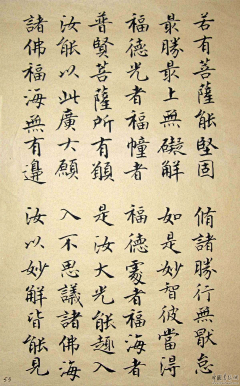 若有菩薩能堅固 脩諸勝行無厭怠
最勝最上無礙解 如是妙智彼當得
福德光者福幢者 福德處者福海者
普賢菩薩所有願 是汝大光能趣入
汝能以此廣大願 入不思議諸佛海
諸佛福海無有邊 汝以妙解皆能見
59